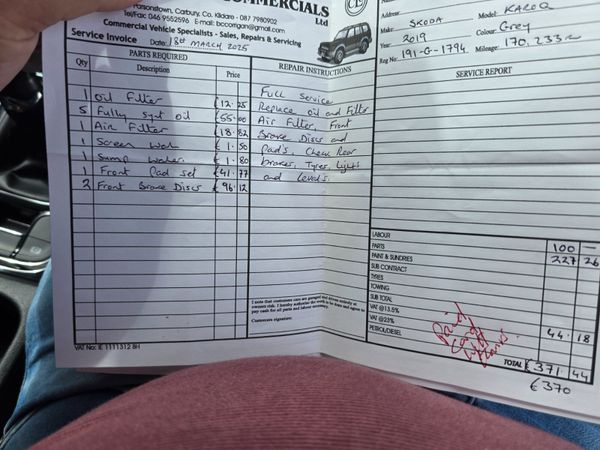 COMMERCIALS
Ltd
Parsonstown, Carbury, Co. Kildare - 087 7980902
Tel/Fax: 046 9552596 - Email: bccomgan@gmail.com
Commercial Vehicle Specialists - Sales, Repairs & Servicing
Service Invoice Date: 18th MARCH 2025
PARTS REQUIRED
Qty Description Price
1 Oil Filter £12.25
5 Fully Synt oil £55.00
1 Air Filter £18.82
1 Screen Wash £1.50
1 Sump Washer £1.80
1 Front Pad set £41.77
2 Front Brake Discs £96.12
VAT No: IE 1111312 BH
REPAIR INSTRUCTIONS
Full Service
Replace oil and Filter
Air Filter, Front
Brake Discs and
Pads, Check Rear
brakes, Tyres, Lights
and Levels.
I note that customers cars are garaged and driven entirely at
owners risk. I hereby authorise the work to be done and agree to
pay cash for all parts and labour necessary.
Customers signature:
Address
Make: SKODA Model KAROQ
2019 Colour: Grey
Reg No: 191-G-1794 Mileage: 170,233
SERVICE REPORT
LABOUR 100 —
PARTS 227 26
PAINT & SUNDRIES
SUB CONTRACT
TYRES
TOWING
SUB TOTAL
VAT @13.5% 44.18
VAT @23%
PETROL/DIESEL
TOTAL €371.44
€370
Paid
Card
With
Thanks